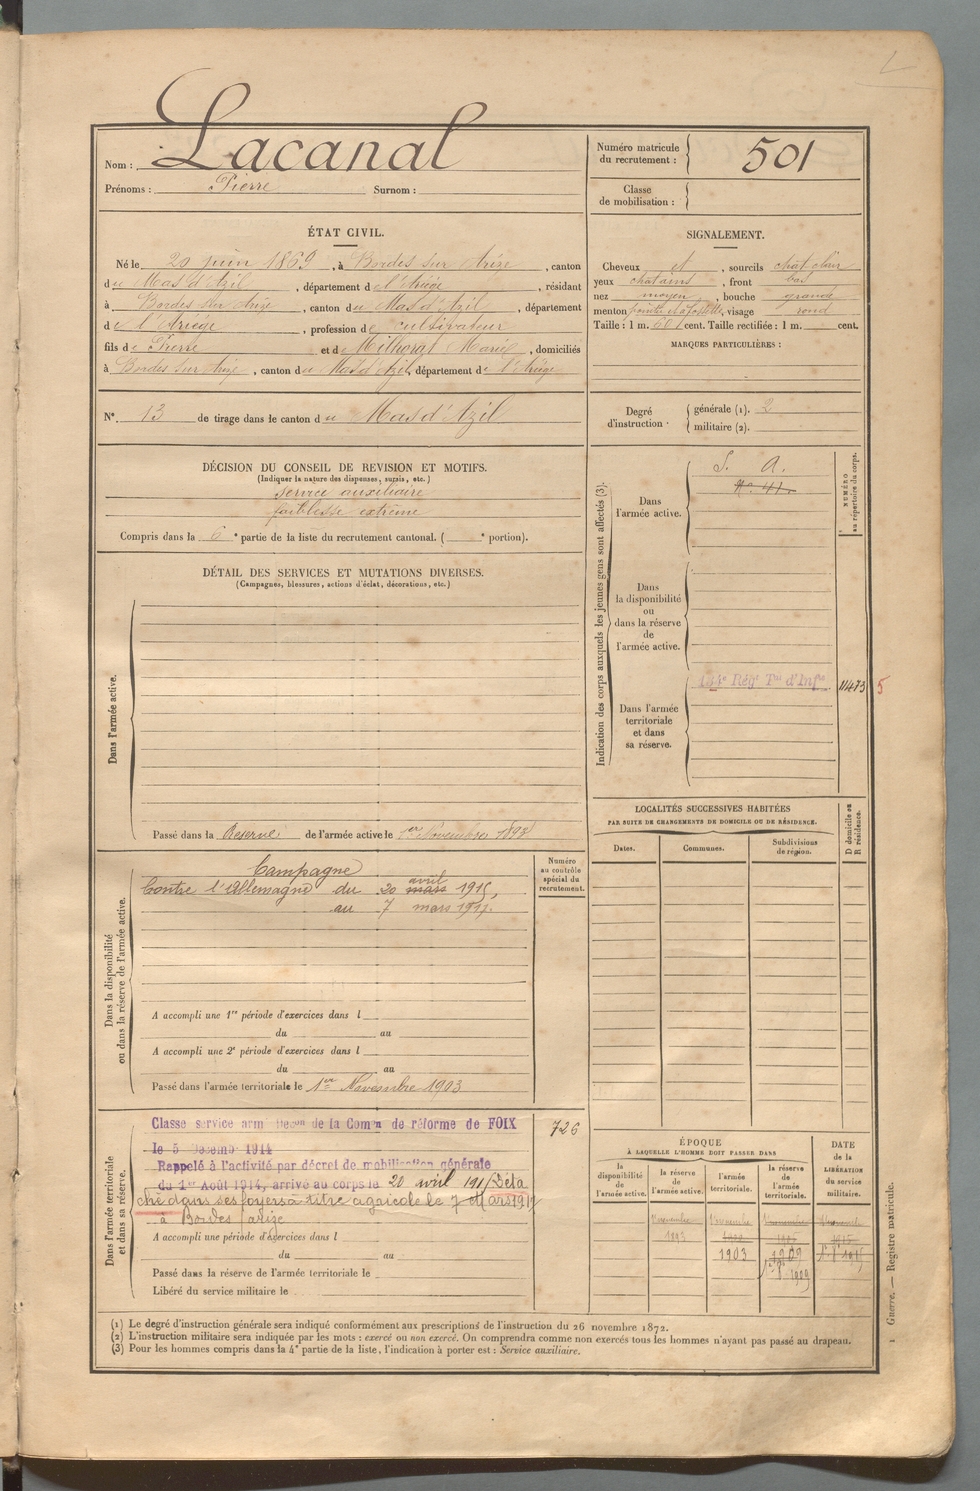 Nom : Lacanal
Prénoms : Pierre Surnom :
Numéro matricule du recrutement : 501
Classe de mobilisation :
ÉTAT CIVIL.
Né le 20 juin 1869, à Bordes sur Arize, canton
du Mas d'Azil, département de l'Ariège, résidant
à Bordes sur Arize, canton du Mas d'Azil, département
de l'Ariège, profession de cultivateur
fils de Pierre et de Milhorat Marie, domiciliés
à Bordes sur Arize, canton du Mas d'Azil, département de l'Ariège
N° 13 de tirage dans le canton du Mas d'Azil
SIGNALEMENT.
Cheveux et, sourcils chât clair
yeux chatains, front bas
nez moyen, bouche grande
menton pointu, visage rond
Taille : 1 m. cent. Taille rectifiée : 1 m. cent.
MARQUES PARTICULIÈRES :
Degré d'instruction { générale (1). 2
militaire (2).
DÉCISION DU CONSEIL DE REVISION ET MOTIFS.
(Indiquer la nature des dispenses, sursis, etc.)
service auxiliaire
faiblesse extrême
Compris dans la 6e partie de la liste du recrutement cantonal. ( e portion).
DÉTAIL DES SERVICES ET MUTATIONS DIVERSES.
(Campagnes, blessures, actions d'éclat, décorations, etc.)
Dans l'armée active.
Passé dans la Réserve de l'armée active le 1er Novembre 1893
Dans la disponibilité
ou dans la réserve de l'armée active.
Campagne
Contre l'Allemagne du 20 mars avril 1915,
au 7 mars 1917.
A accompli une 1re période d'exercices dans l
du au
A accompli une 2e période d'exercices dans l
du au
Passé dans l'armée territoriale le 1er Novembre 1903
Numéro au contrôle spécial du recrutement.
726
Dans l'armée territoriale
et dans sa réserve.
Classé service armé Décon de la Comon de réforme de FOIX
le 5 Décembre 1914
Rappelé à l'activité par décret de mobilisation générale
du 1er Août 1914, arrivé au corps le 20 avril 191 Déta
ché dans ses foyers à titre agricole le 7 Mars 1917
à Bordes Arize
A accompli une période d'exercices dans l
du au
Passé dans la réserve de l'armée territoriale le
Libéré du service militaire le
Indication des corps auxquels les jeunes gens sont affectés (3).
Dans l'armée active.
S. A.
N° 41.
Dans la disponibilité ou dans la réserve de l'armée active.
Dans l'armée territoriale et dans sa réserve.
134e Régt Tal d'Infie
NUMÉRO au répertoire du corps.
11473 5
LOCALITÉS SUCCESSIVES HABITÉES
PAR SUITE DE CHANGEMENTS DE DOMICILE OU DE RÉSIDENCE.
Dates. Communes. Subdivisions de région.
D domicile ou R résidence.
ÉPOQUE
À LAQUELLE L'HOMME DOIT PASSER DANS
la disponibilité de l'armée active.
la réserve de l'armée active.
l'armée territoriale.
la réserve de l'armée territoriale.
DATE de la LIBÉRATION du service militaire.
1er novembre 1893
1er novembre 1903
1909
1909
1915
(1) Le degré d'instruction générale sera indiqué conformément aux prescriptions de l'instruction du 26 novembre 1872.
(2) L'instruction militaire sera indiquée par les mots : exercé ou non exercé. On comprendra comme non exercés tous les hommes n'ayant pas passé au drapeau.
(3) Pour les hommes compris dans la 4e partie de la liste, l'indication à porter est : Service auxiliaire.
1 Guerre. — Registre matricule.